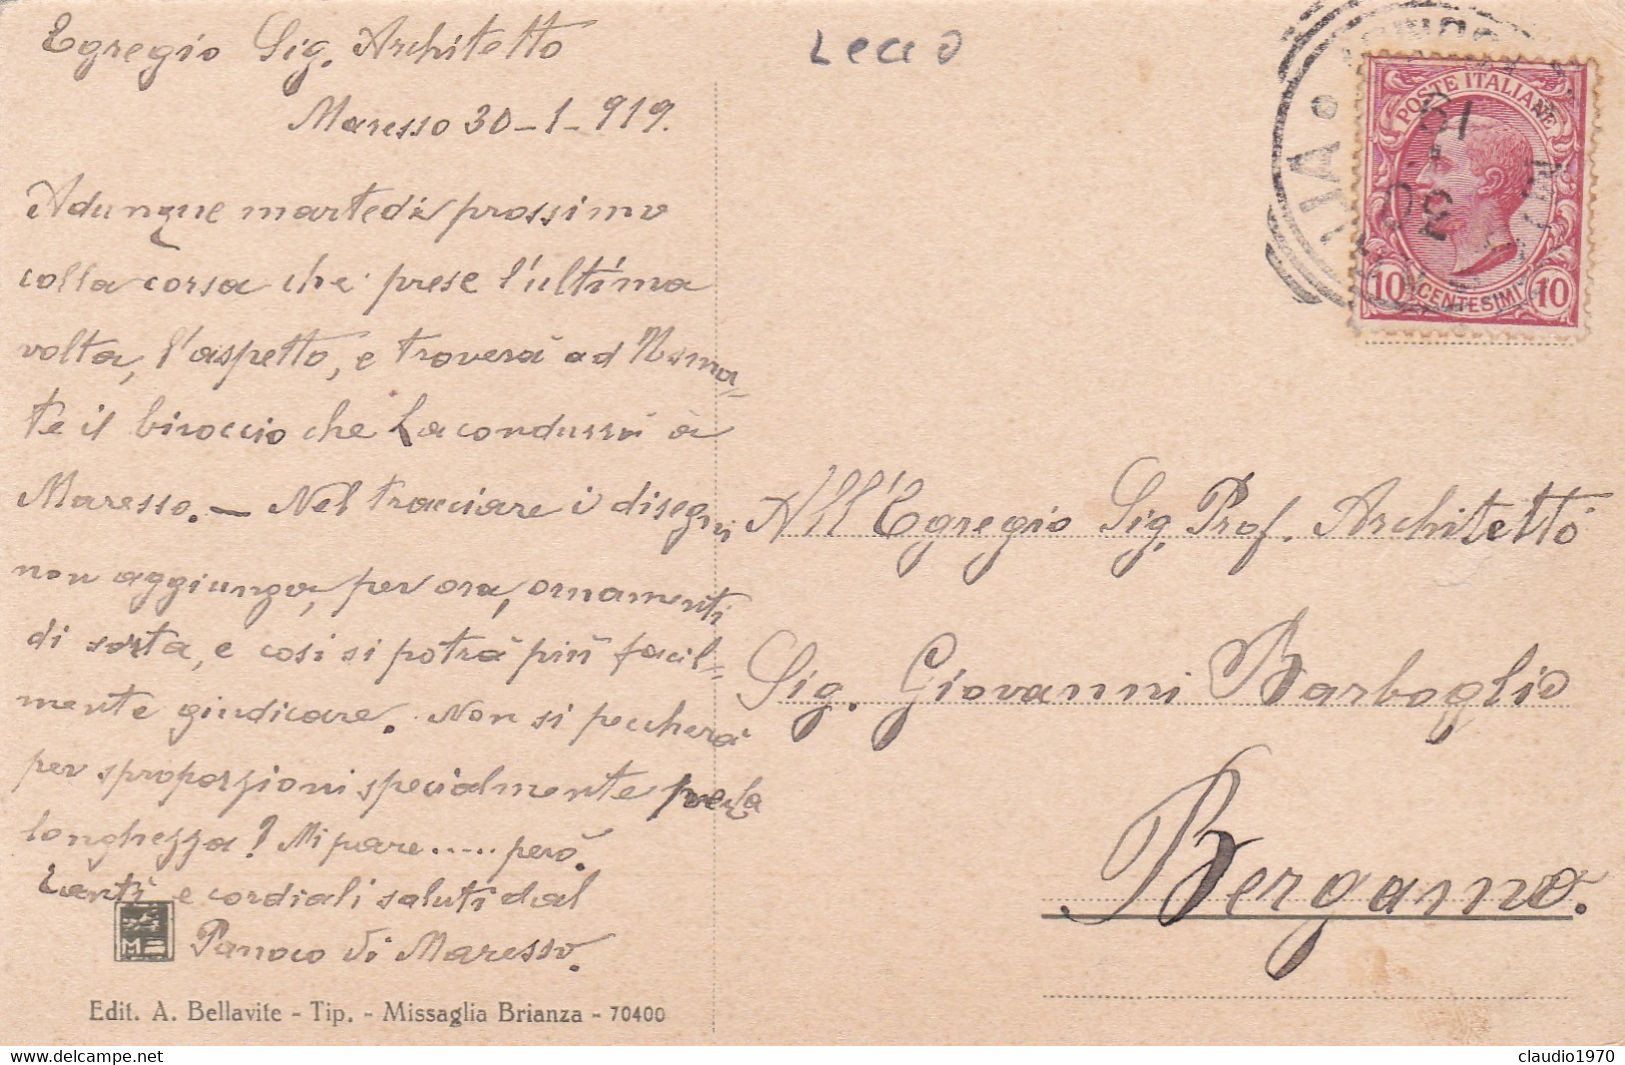 Egregio Sig. Architetto
Maresso 30-1-919.
Adunque martedì prossimo
colla corsa che prese l'ultima
volta, l'aspetto, e troverà ad Usma-
te il biroccio che La condurrà à
Maresso. — Nel tracciare i disegni
non aggiunga, per ora, ornamenti
di sorta, e così si potrà più facil-
mente giudicare. Non si peccherà
per sproporzioni specialmente per la
longhezza? Mi pare..... però.
Tanti e cordiali saluti dal
Paroco di Maresso.
M
Edit. A. Bellavite - Tip. - Missaglia Brianza - 70400
Lecco
POSTE ITALIANE
10 CENTESIMI 10
All'Egregio Sig. Prof. Architetto
Sig. Giovanni Barboglio
Bergamo.
www.delcampe.net
claudio1970